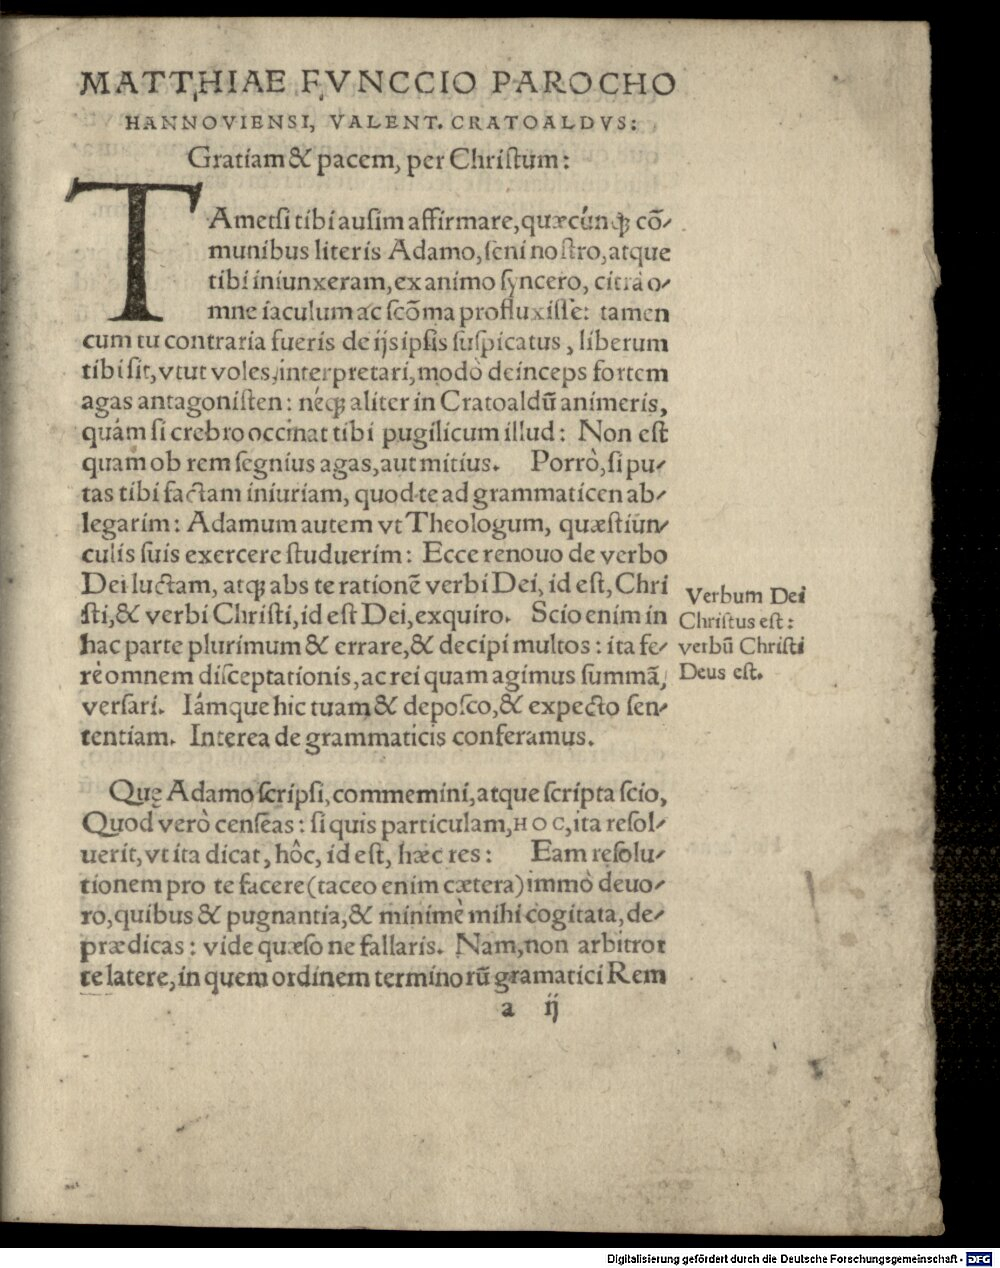 MATTHIAE FVNCCIO PAROCHO
HANNOVIENSI, VALENT. CRATOALDVS:
Gratiam & pacem, per Chriſtum:
TAmetſi tibi auſim affirmare, quæcúnqꝫ cõ-
munibus literis Adamo, ſeni noſtro, atque
tibi iniunxeram, ex animo ſyncero, citrà o-
mne iaculum ac ſcõma profluxiſſe: tamen
cum tu contraria fueris de ijs ipſis ſuſpicatus, liberum
tibi ſit, vtut voles, interpretari, modò deinceps fortem
agas antagoniſten: néqꝫ aliter in Cratoaldũ animeris,
quám ſi crebro occinat tibi pugilicum illud: Non eſt
quam ob rem ſegnius agas, aut mitius. Porrò, ſi pu-
tas tibi factam iniuriam, quod te ad grammaticen ab-
legarim: Adamum autem vt Theologum, quæſtiun-
culis ſuis exercere ſtuduerim: Ecce renouo de verbo
Dei luctam, atqꝫ abs te rationẽ verbi Dei, id eſt, Chri
ſti, & verbi Chriſti, id eſt Dei, exquiro. Scio enim in
hac parte plurimum & errare, & decipi multos: ita fe-
rè omnem diſceptationis, ac rei quam agimus ſummã,
verſari. Iámque hic tuam & depoſco, & expecto ſen-
tentiam. Interea de grammaticis conferamus.
Verbum Dei
Chriſtus eſt:
verbũ Chriſti
Deus eſt.
Quę Adamo ſcripſi, commemini, atque ſcripta ſcio,
Quod verò cenſeas: ſi quis particulam, HOC, ita reſol-
uerit, vt ita dicat, hôc, id eſt, hæc res: Eam reſolu-
tionem pro te facere (taceo enim cætera) immò deuo-
ro, quibus & pugnantia, & minimè mihi cogitata, de-
prædicas: vide quæſo ne fallaris. Nam, non arbitror
te latere, in quem ordinem terminorũ gramatici Rem
a ij
Digitalisierung gefördert durch die Deutsche Forschungsgemeinschaft - DFG